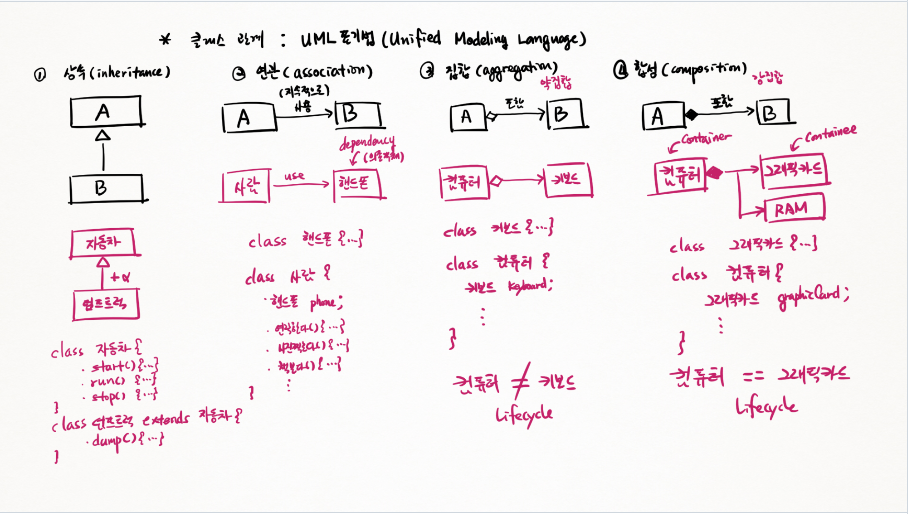 * 클래스 관계 : UML 표기법 (Unified Modeling Language)
① 상속 (inheritance)
A
B
자동차
+α
덤프트럭
class 자동차 {
· start() {...}
· run() {...}
· stop() {...}
}
class 덤프트럭 extends 자동차 {
· dump() {...}
}
② 연관 (association)
(지속적으로)
사용
A
B
dependency
(의존관계)
사람
use
핸드폰
class 핸드폰 {...}
class 사람 {
· 핸드폰 phone;
· 연락한다() {...}
· 사진찍는다() {...}
· 책본다() {...}
⋮
}
③ 집합 (aggregation)
약집합
A
포함
B
컴퓨터
키보드
class 키보드 {...}
class 컴퓨터 {
키보드 keyboard;
⋮
}
컴퓨터 ≠ 키보드
Lifecycle
④ 합성 (composition)
강집합
A
포함
B
Container
Containee
컴퓨터
그래픽카드
RAM
class 그래픽카드 {...}
class 컴퓨터 {
그래픽카드 graphicCard;
⋮
}
컴퓨터 == 그래픽카드
Lifecycle